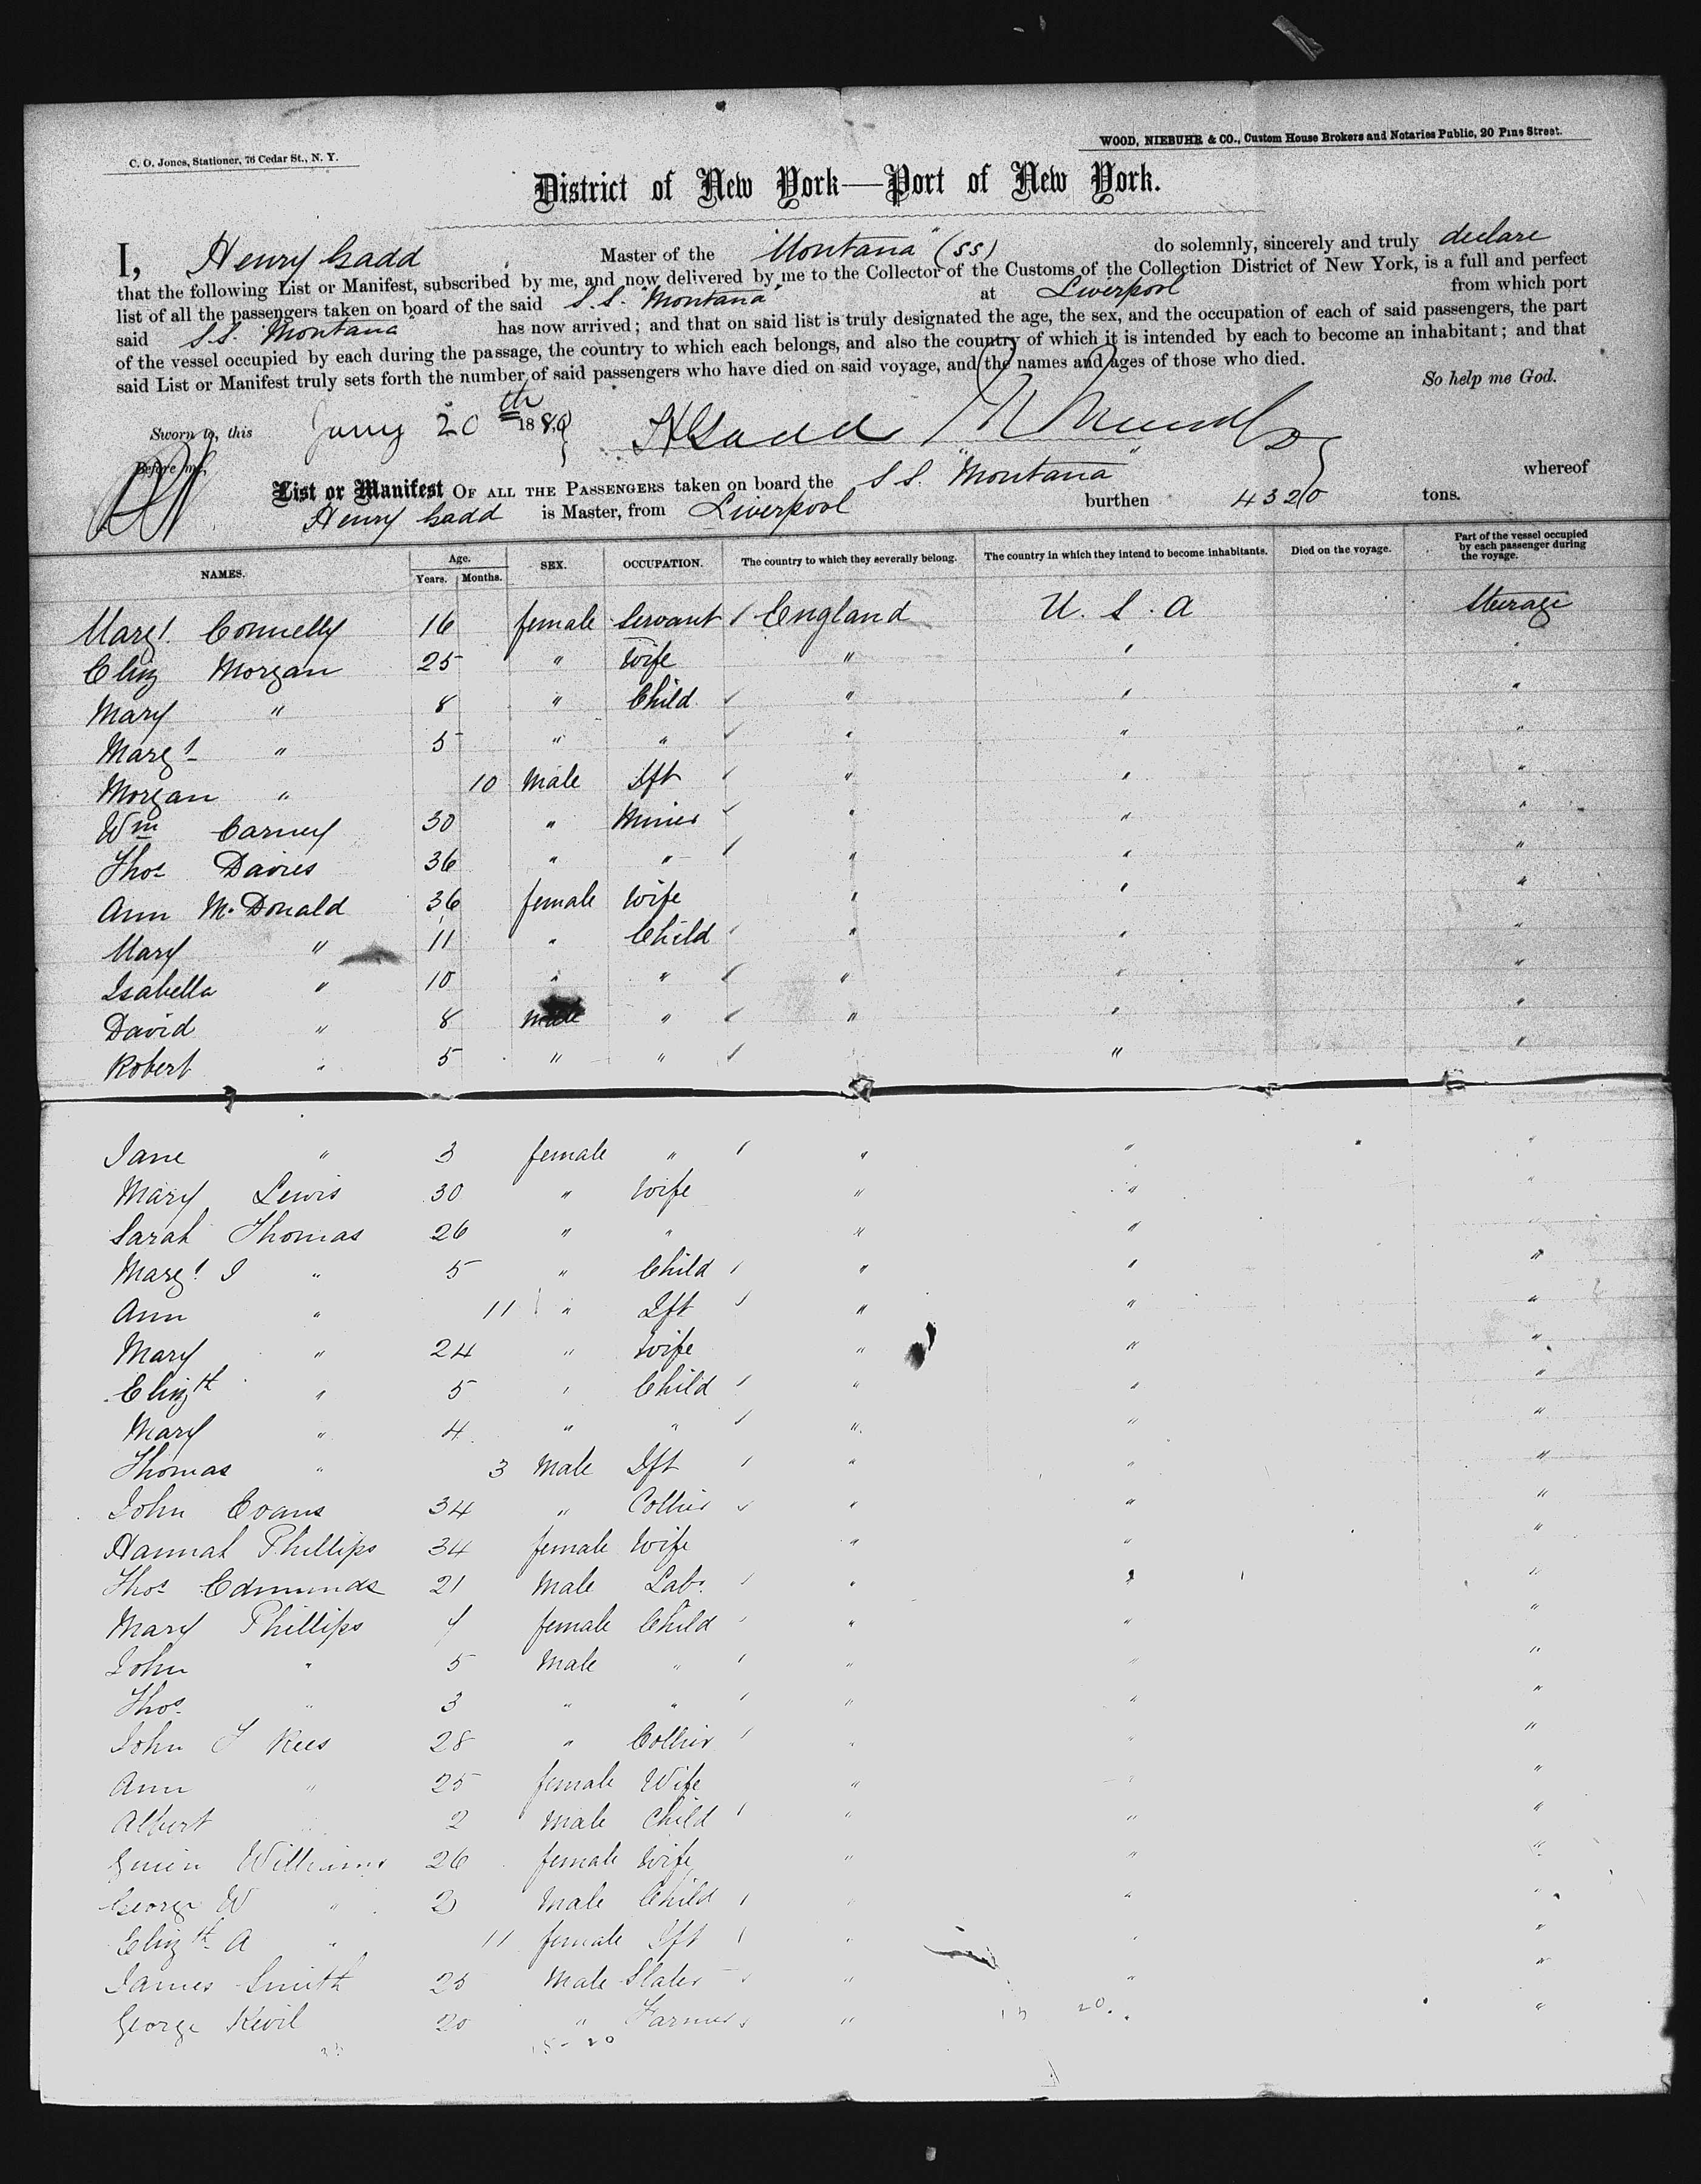 C. O. Jones, Stationer, 76 Cedar St., N. Y.
WOOD, NIEBUHR & CO., Custom House Brokers and Notaries Public, 20 Pine Street.
District of New York—Port of New York.
I, Henry Gadd Master of the "Montana" (SS) do solemnly, sincerely and truly declare
that the following List or Manifest, subscribed by me, and now delivered by me to the Collector of the Customs of the Collection District of New York, is a full and perfect
list of all the passengers taken on board of the said S.S. "Montana" at Liverpool from which port
said S.S. "Montana" has now arrived; and that on said list is truly designated the age, the sex, and the occupation of each of said passengers, the part
of the vessel occupied by each during the passage, the country to which each belongs, and also the country of which it is intended by each to become an inhabitant; and that
said List or Manifest truly sets forth the number of said passengers who have died on said voyage, and the names and ages of those who died.
So help me God.
Sworn to, this Jany 20th 1880 HGadd
Before me,
List or Manifest OF ALL THE PASSENGERS taken on board the S.S. "Montana" whereof
Henry Gadd is Master, from Liverpool burthen 4320 tons.
NAMES. Age. Years. Months. SEX. OCCUPATION. The country to which they severally belong. The country in which they intend to become inhabitants. Died on the voyage. Part of the vessel occupied by each passenger during the voyage.
Margt. Connelly 16 female Servant / England U. S. A Steerage
Eliz Morgan 25 " Wife " " "
Mary " 8 " Child / " " "
Margt " 5 " " / " " "
Morgan " 10 Male Ift / " " "
Wm Carney 30 " Miner / " " "
Thos Davies 36 " " / " " "
Ann McDonald 36 female Wife " " "
Mary " 11 " Child / " " "
Isabella " 10 " " / " " "
David " 8 Male " / " " "
Robert " 5 " " / " "
Jane " 3 female " / " " "
Mary Lewis 30 " Wife " " "
Sarah Thomas 26 " " " " "
Margt J " 5 " Child / " " "
Ann " 11 " Ift / " " "
Mary " 24 " Wife " " "
Elizth " 5 " Child / " " "
Mary " 4 " " / " " "
Thomas " 3 Male Ift / " " "
John Evans 34 " Collier / " " "
Hannah Phillips 34 female Wife " " "
Thos Edmunds 21 Male Labr / " " "
Mary Phillips 7 female Child / " " "
John " 5 Male " / " " "
Thos " 3 " " / " " "
John T Rees 28 " Collier / " " "
Ann " 25 female Wife " " "
Albert " 2 Male Child / " " "
Williams 26 female Wife " " "
George W " 2 Male Child / " " "
Elizth A " 11 female Ift / " " "
James Smith 25 Male Slater / " " "
George Kevil 20 " Farmer / " " "
18-20